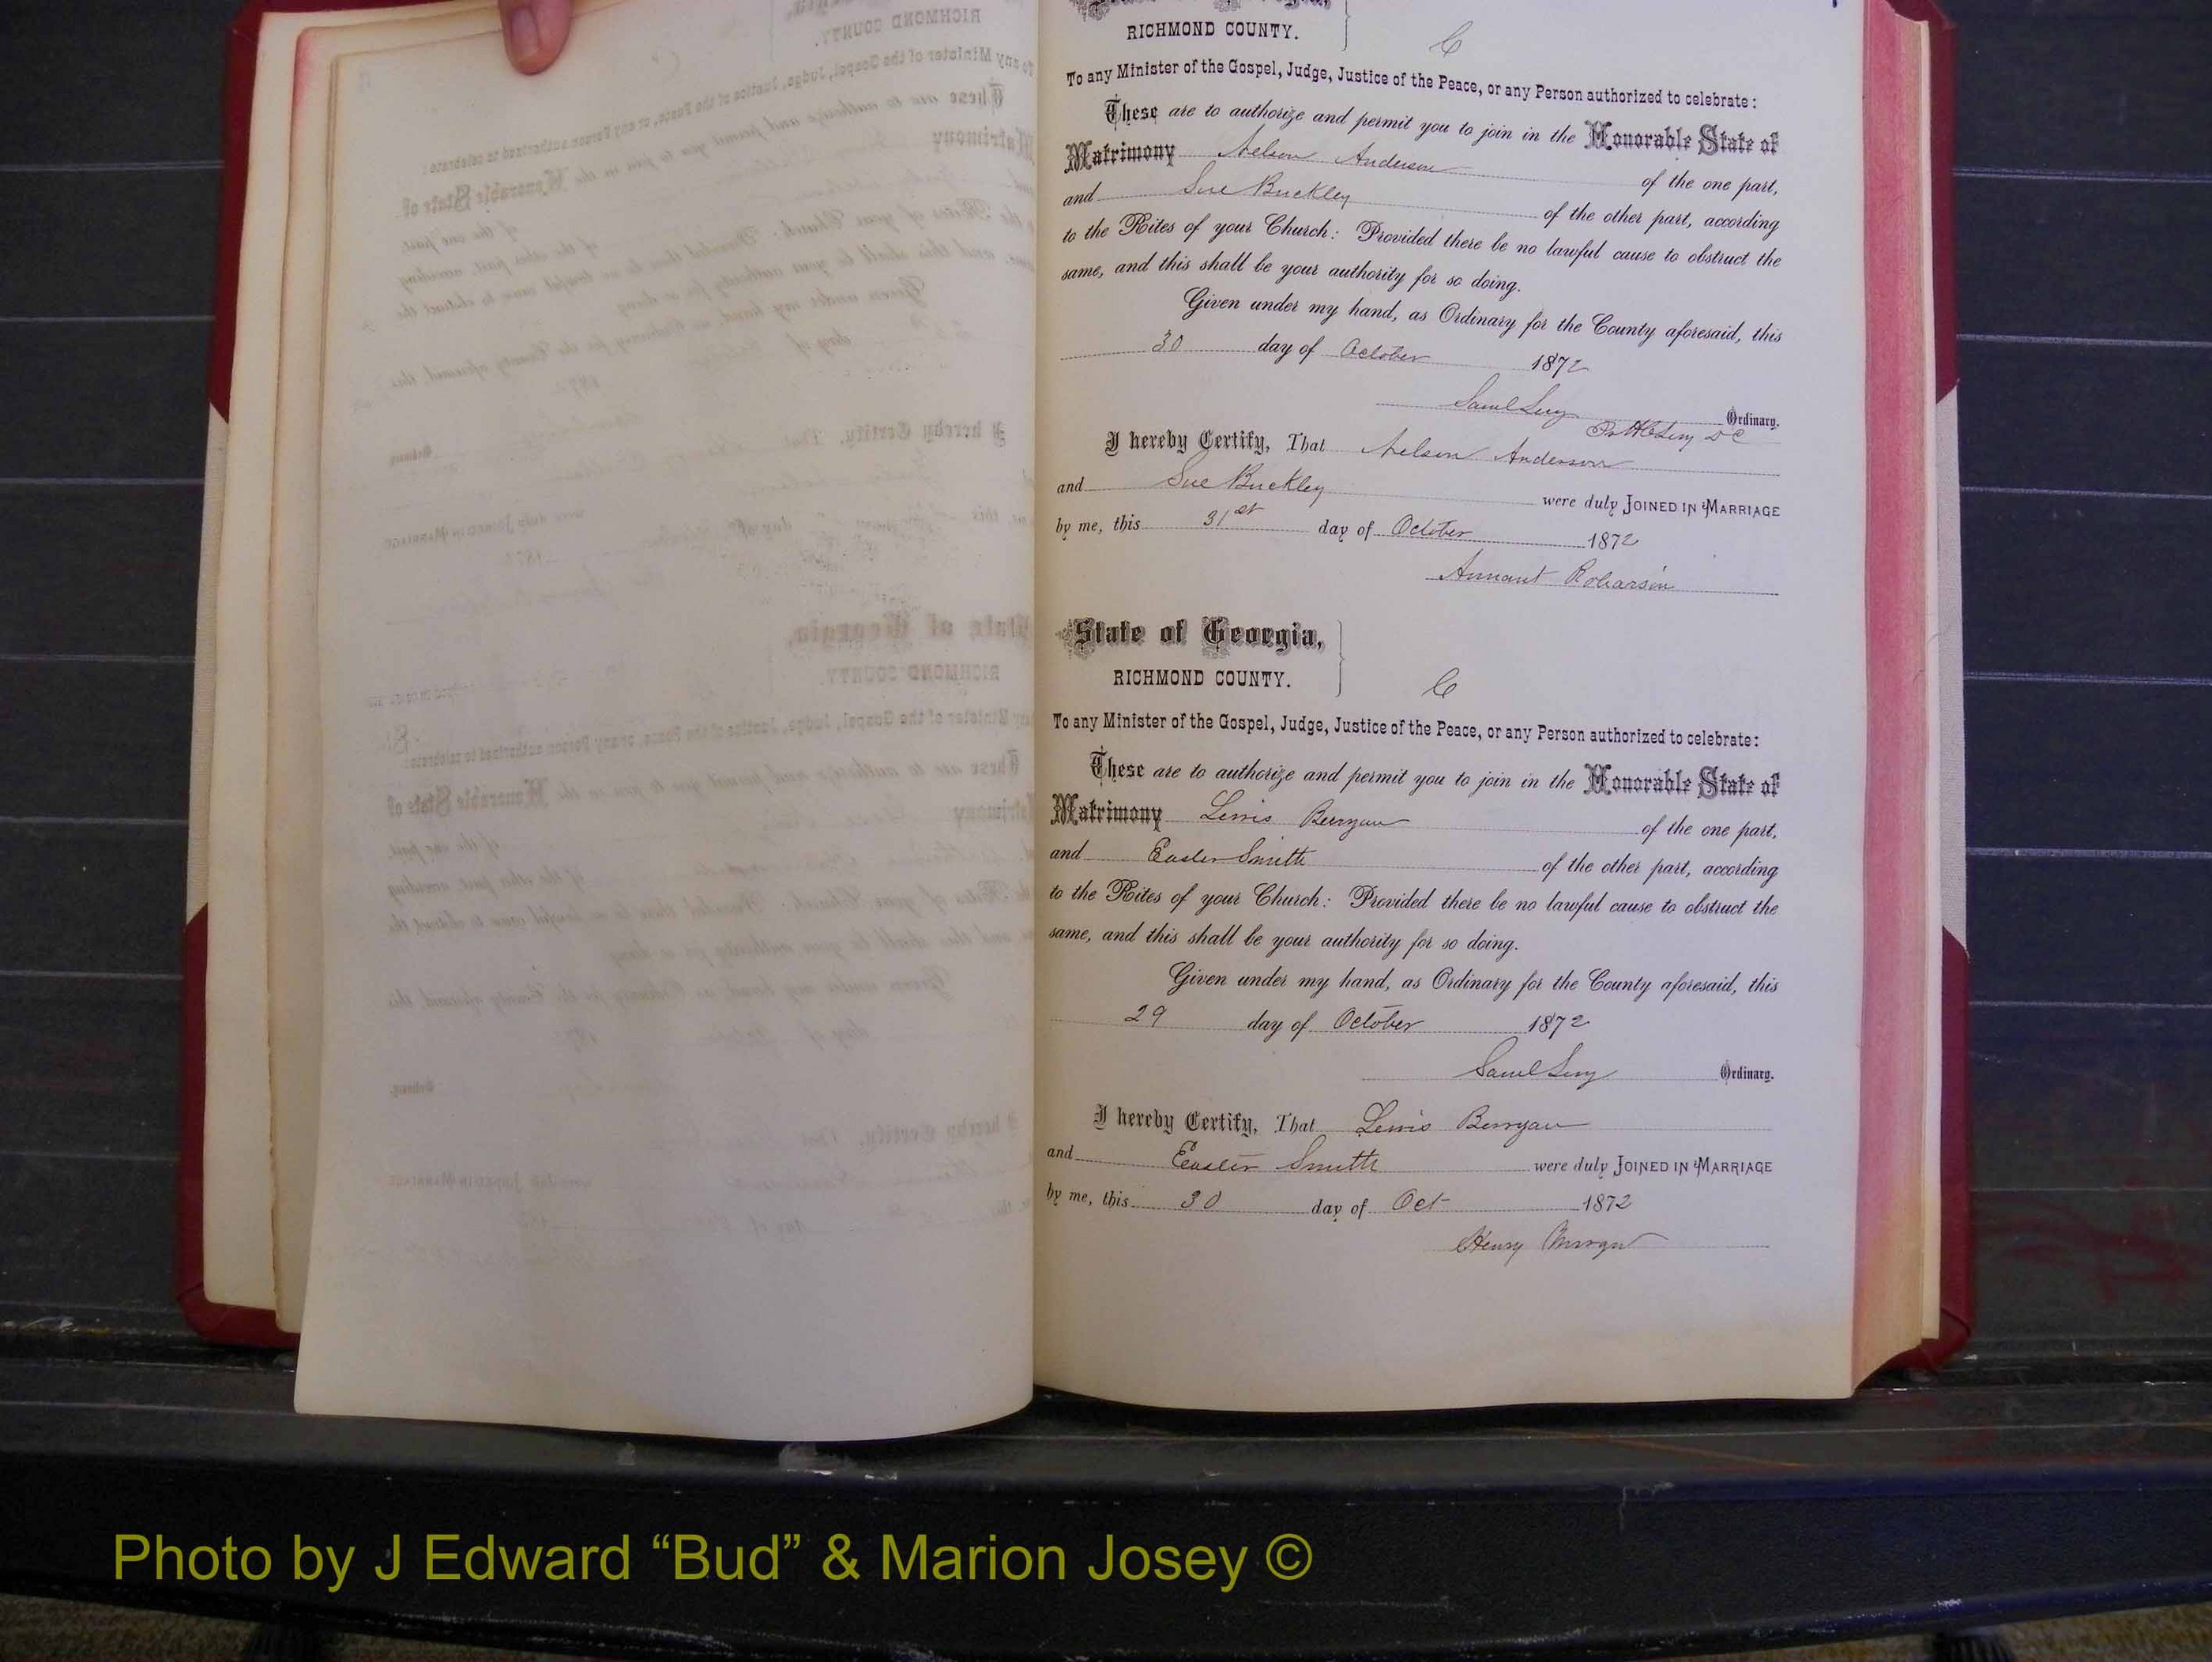 State of Georgia,
RICHMOND COUNTY.
C
To any Minister of the Gospel, Judge, Justice of the Peace, or any Person authorized to celebrate:
These are to authorize and permit you to join in the Honorable State of
Matrimony Nelson Anderson of the one part,
and Sue Buckley of the other part, according
to the Rites of your Church: Provided there be no lawful cause to obstruct the
same, and this shall be your authority for so doing.
Given under my hand, as Ordinary for the County aforesaid, this
30 day of October 1872
Saml Levy Ordinary.
Levy DC
I hereby Certify, That Nelson Anderson
and Sue Buckley were duly JOINED IN MARRIAGE
by me, this 31st day of October 1872
State of Georgia,
RICHMOND COUNTY.
C
To any Minister of the Gospel, Judge, Justice of the Peace, or any Person authorized to celebrate:
These are to authorize and permit you to join in the Honorable State of
Matrimony Lewis of the one part,
and Easter Smith of the other part, according
to the Rites of your Church: Provided there be no lawful cause to obstruct the
same, and this shall be your authority for so doing.
Given under my hand, as Ordinary for the County aforesaid, this
29 day of October 1872
Saml Levy Ordinary.
I hereby Certify, That Lewis
and Easter Smith were duly JOINED IN MARRIAGE
by me, this 30 day of Oct 1872
Henry Morgan
Photo by J Edward “Bud” & Marion Josey ©